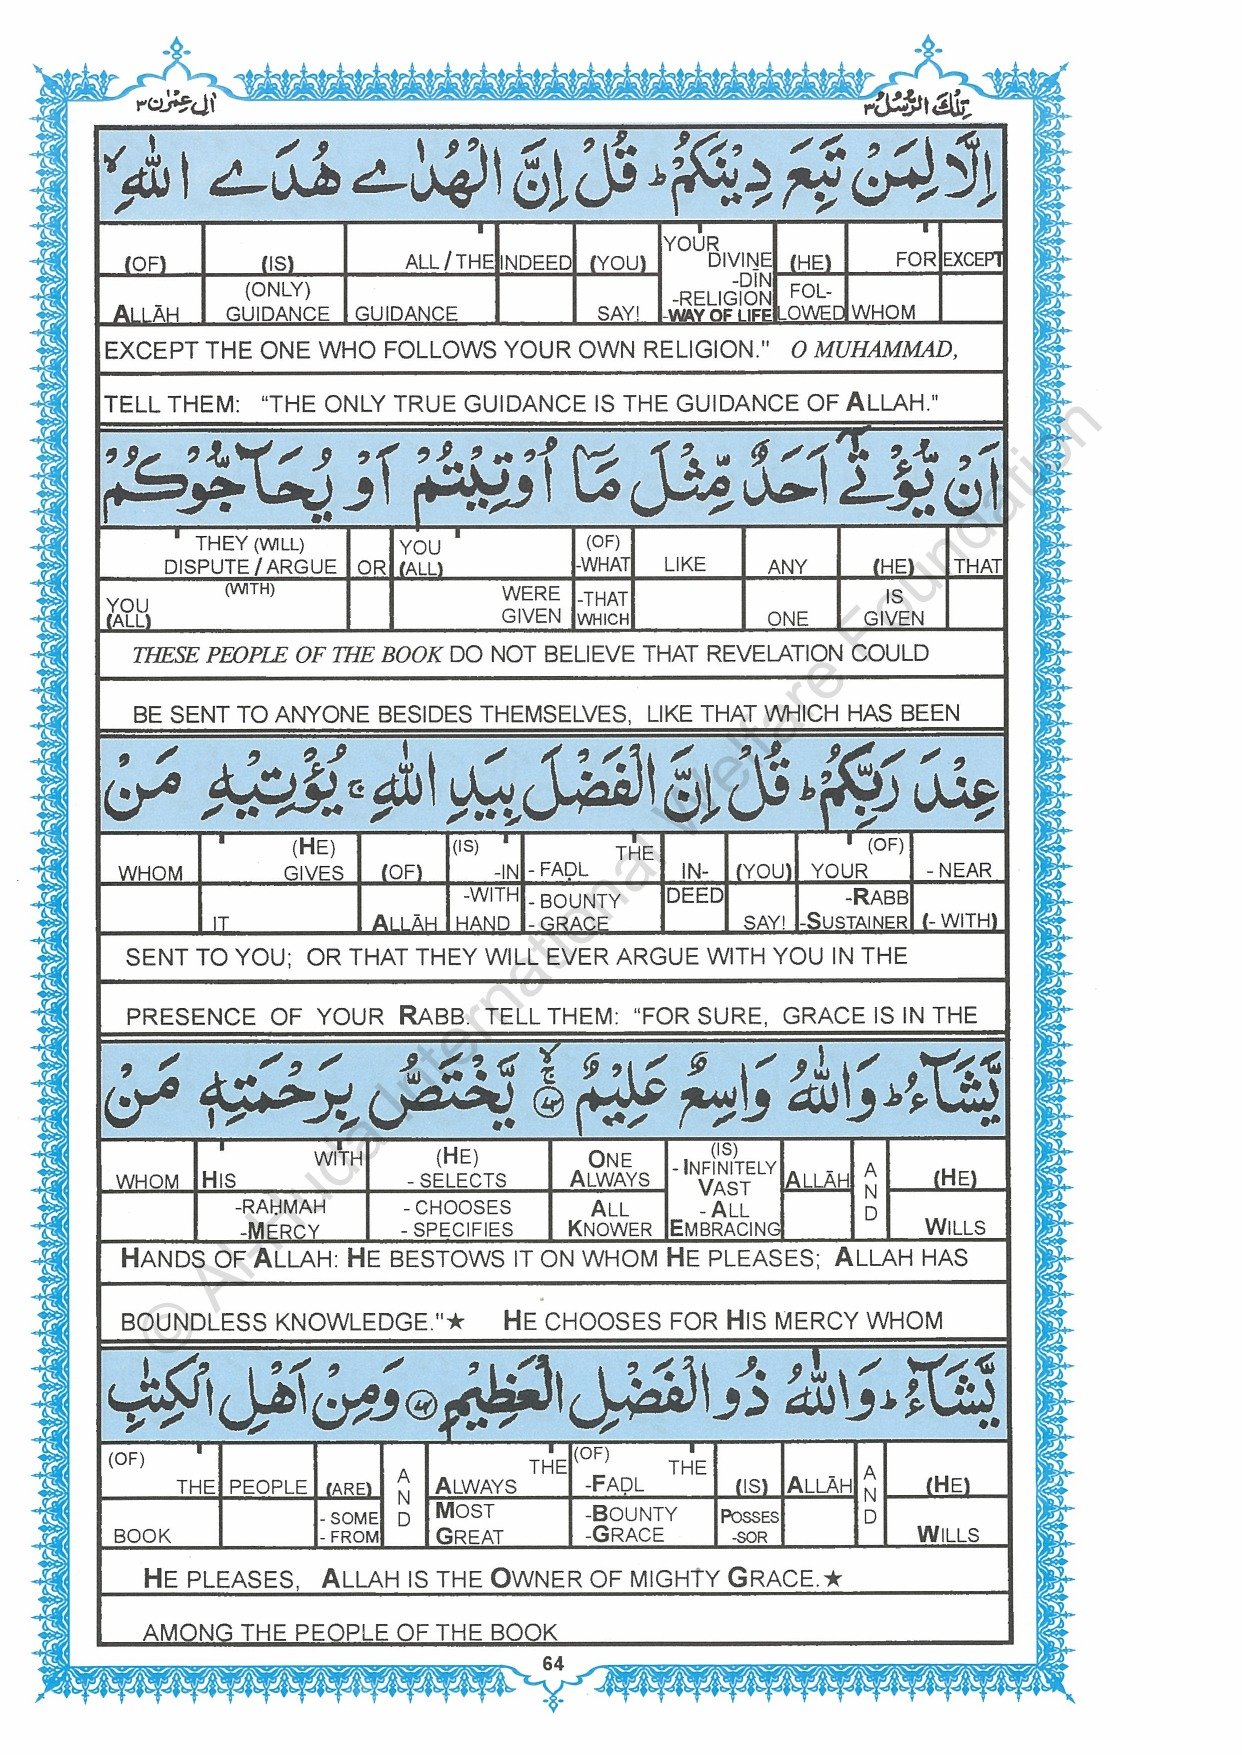 اٰل عِمْرٰن ۳
تِلْكَ الرُّسُلُ ۳
اِلَّا لِمَنْ تَبِعَ دِيْنَكُمْ ؕ قُلْ اِنَّ الْهُدٰے هُدَے اللّٰهِ ۙ
(OF) (IS) ALL / THE INDEED (YOU) YOUR DIVINE -DĪN -RELIGION -WAY OF LIFE (HE) FOR EXCEPT
ALLĀH (ONLY) GUIDANCE GUIDANCE SAY! FOL-LOWED WHOM
EXCEPT THE ONE WHO FOLLOWS YOUR OWN RELIGION." O MUHAMMAD,
TELL THEM: “THE ONLY TRUE GUIDANCE IS THE GUIDANCE OF ALLAH."
اَنْ يُّؤْتٰٓے اَحَدٌ مِّثْلَ مَاۤ اُوْتِيْتُمْ اَوْ يُحَآجُّوْكُمْ
THEY (WILL) DISPUTE / ARGUE OR YOU (ALL) (OF) -WHAT LIKE ANY (HE) THAT
YOU (ALL) (WITH) WERE GIVEN -THAT WHICH ONE IS GIVEN
THESE PEOPLE OF THE BOOK DO NOT BELIEVE THAT REVELATION COULD
BE SENT TO ANYONE BESIDES THEMSELVES, LIKE THAT WHICH HAS BEEN
عِنْدَ رَبِّكُمْ ؕ قُلْ اِنَّ الْفَضْلَ بِيَدِ اللّٰهِ ۚ يُؤْتِيْهِ مَنْ
WHOM (HE) GIVES (OF) (IS) -IN - FAḌL THE IN- (YOU) YOUR (OF) - NEAR
IT ALLĀH -WITH HAND - BOUNTY - GRACE DEED SAY! -RABB -SUSTAINER (- WITH)
SENT TO YOU; OR THAT THEY WILL EVER ARGUE WITH YOU IN THE
PRESENCE OF YOUR RABB. TELL THEM: “FOR SURE, GRACE IS IN THE
يَّشَآءُ ؕ وَاللّٰهُ وَاسِعٌ عَلِيْمٌ ۙۚ ۷۳ يَّخْتَصُّ بِرَحْمَتِهٖ مَنْ
WHOM HIS WITH (HE) - SELECTS ONE ALWAYS (IS) - INFINITELY VAST ALLĀH AND (HE)
-RAḤMAH -MERCY - CHOOSES - SPECIFIES ALL KNOWER - ALL EMBRACING WILLS
HANDS OF ALLAH: HE BESTOWS IT ON WHOM HE PLEASES; ALLAH HAS
BOUNDLESS KNOWLEDGE."★ HE CHOOSES FOR HIS MERCY WHOM
يَّشَآءُ ؕ وَاللّٰهُ ذُو الْفَضْلِ الْعَظِيْمِ ۷۴ وَمِنْ اَهْلِ الْكِتٰبِ
(OF) THE PEOPLE (ARE) AND ALWAYS THE (OF) -FAḌL THE (IS) ALLĀH AND (HE)
BOOK - SOME - FROM MOST GREAT -BOUNTY -GRACE POSSES-SOR WILLS
HE PLEASES, ALLAH IS THE OWNER OF MIGHTY GRACE.★
AMONG THE PEOPLE OF THE BOOK
64
© Al-Huda International Welfare Foundation